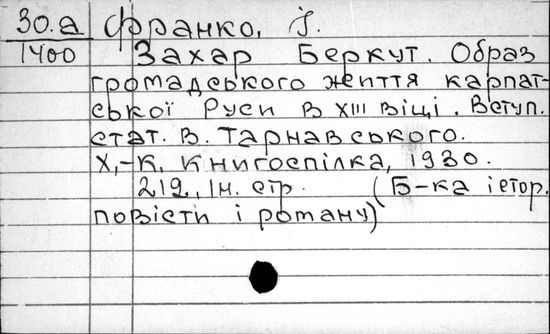 30.а Франко, І.
1400 Захар Беркут. Образ
громадського життя карпат-
ської Руси в XIII віці. Вступ.
стат. В. Тарнавського.
Х,-К, Книгоспілка, 1930.
212, Ін. стр. (Б-ка істор.
повісти і роману)